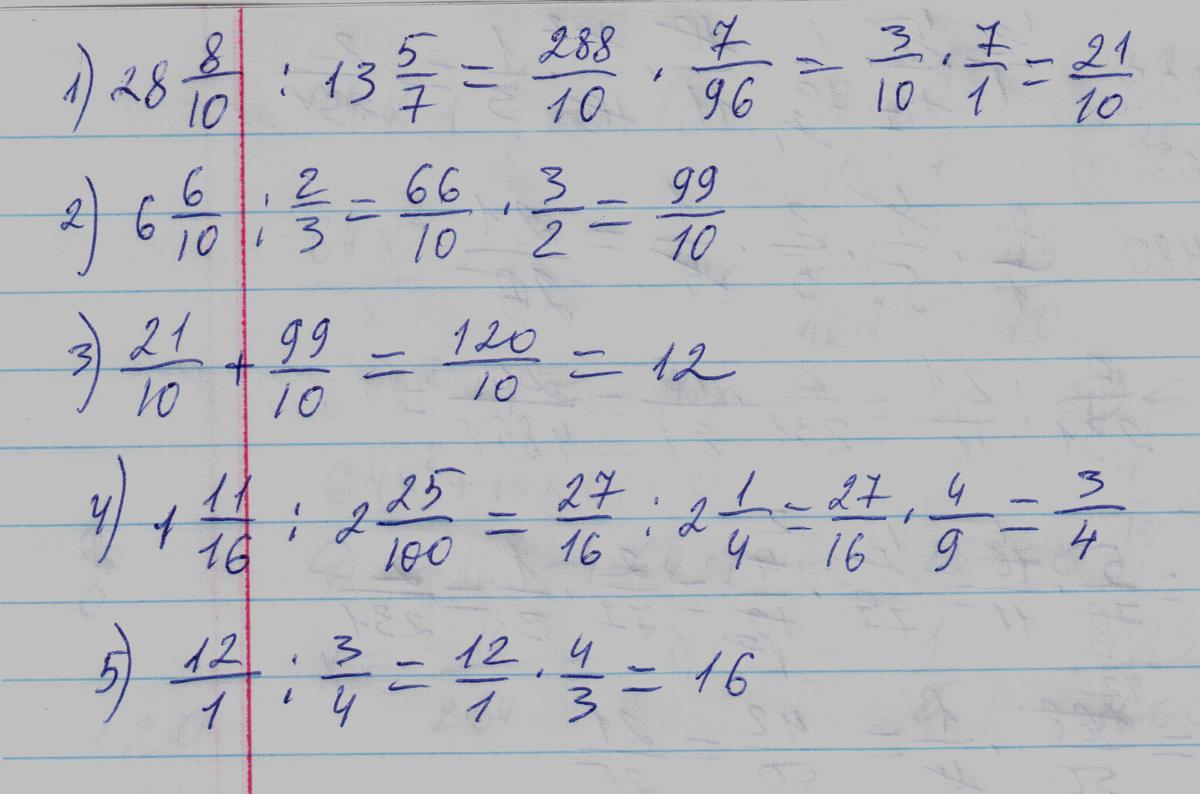 1) 28 8/10 : 13 5/7 = 288/10 · 7/96 = 3/10 · 7/1 = 21/10
2) 6 6/10 : 2/3 = 66/10 · 3/2 = 99/10
3) 21/10 + 99/10 = 120/10 = 12
4) 1 11/16 : 2 25/100 = 27/16 : 2 1/4 = 27/16 · 4/9 = 3/4
5) 12/1 : 3/4 = 12/1 · 4/3 = 16